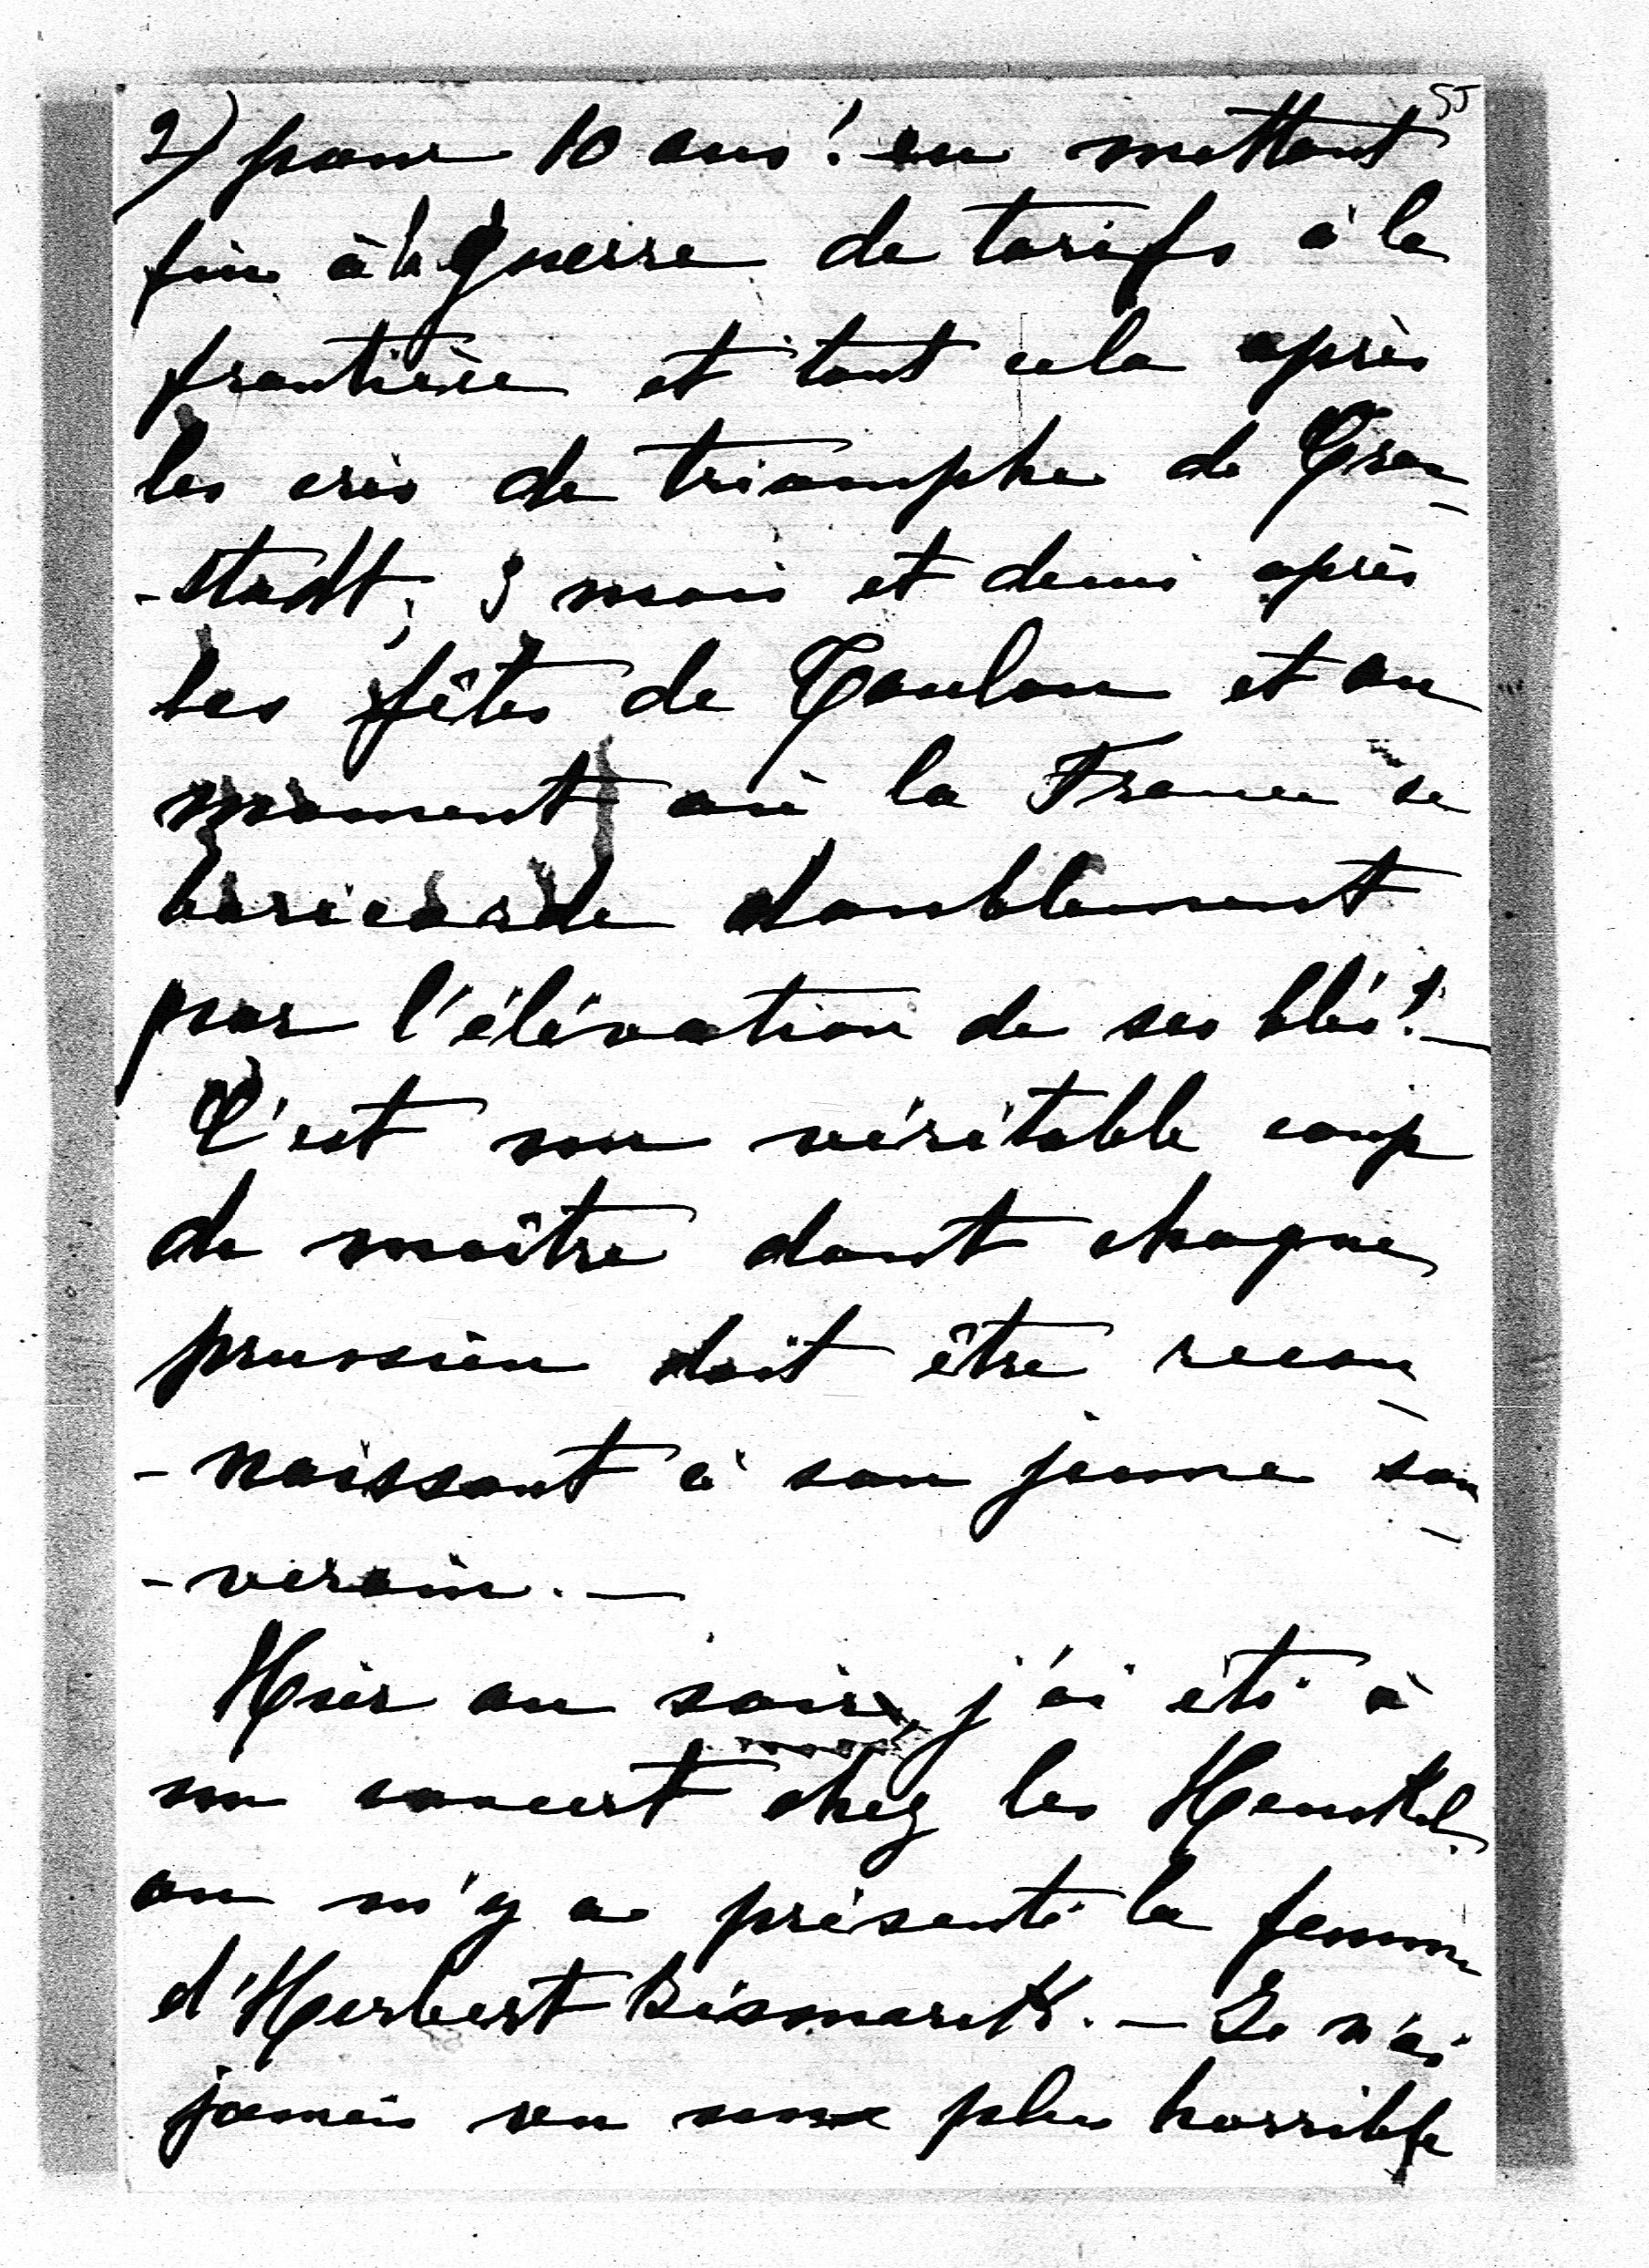 55
2) pour 10 ans! en mettant
fin à la guerre de tarifs à la
frontière et tout cela après
les cris de triomphe de Cron-
-stadt, 3 mois et demi après
les fêtes de Toulon et au
moment où la France se
baricarde doublement
par l'élévation de ses blés! —
C'est un véritable coup
de maître dont chaque
prussien doit être recon-
-naissant à son jeune sou-
-verain. —
Hier au soir, j'ai été à
un concert chez les Henckel,
on m'y a présenté la femme
d'Herbert Bismarck. — Je n'ai
jamais vu une plus horrible